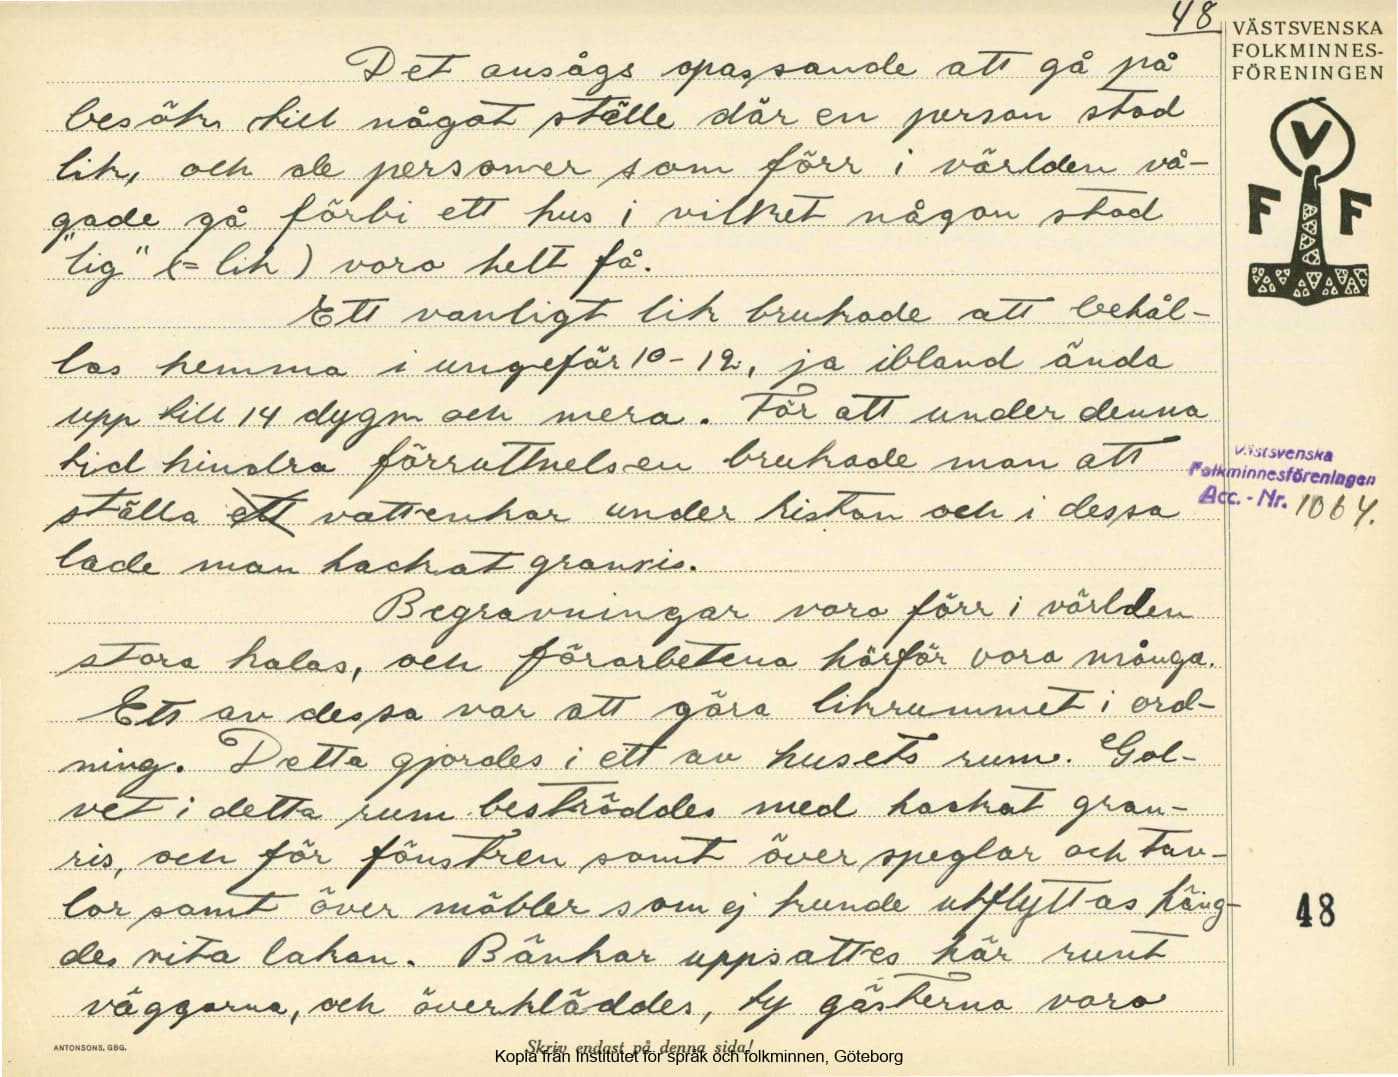 48
VÄSTSVENSKA
FOLKMINNES-
FÖRENINGEN
Det ansågs opassande att gå på
besök till något ställe där en person stod
lik, och de personer som förr i världen vå-
gade gå förbi ett hus i vilket någon stod
"lig" (= lik) voro helt få.
Ett vanligt lik brukade att behål-
las hemma i ungefär 10-12, ja ibland ända
upp till 14 dygn och mera. För att under denna
tid hindra förruttnelsen brukade man att
ställa ett vattenkar under kistan och i dessa
lade man hackat granris.
Begravningar voro förr i världen
stora kalas, och förarbetena härför voro många.
Ett av dessa var att göra likrummet i ord-
ning. Detta gjordes i ett av husets rum. Gol-
vet i detta rum beströddes med hackat gran-
ris, och för fönstren samt över speglar och tav-
lor samt över möbler som ej kunde utflyttas häng-
des vita lakan. Bänkar uppsattes här runt
väggarna, och överkläddes, ty gästerna voro
V
F F
Västsvenska
Folkminnesföreningen
Acc. - Nr. 1064.
48
ANTONSONS, GBG.
Skriv endast på denna sida!
Kopia från Institutet för språk och folkminnen, Göteborg